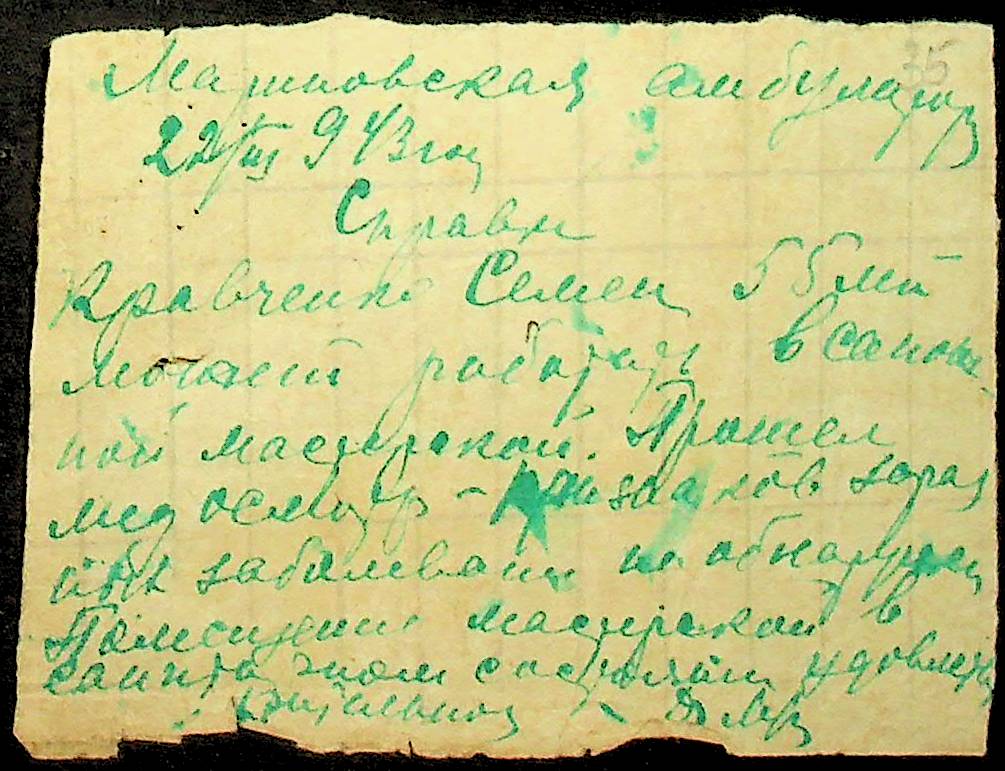 35
амбулатор
22/III 943 год
Справк
Кравченко Семен 55 лет
может работать в сапож
ной мастерской. Прошел
мед осмотр - признаков зараз
ных заболевани не обнаружен
Помещение мастерской в
санитарном состояни удовлетво
рительном